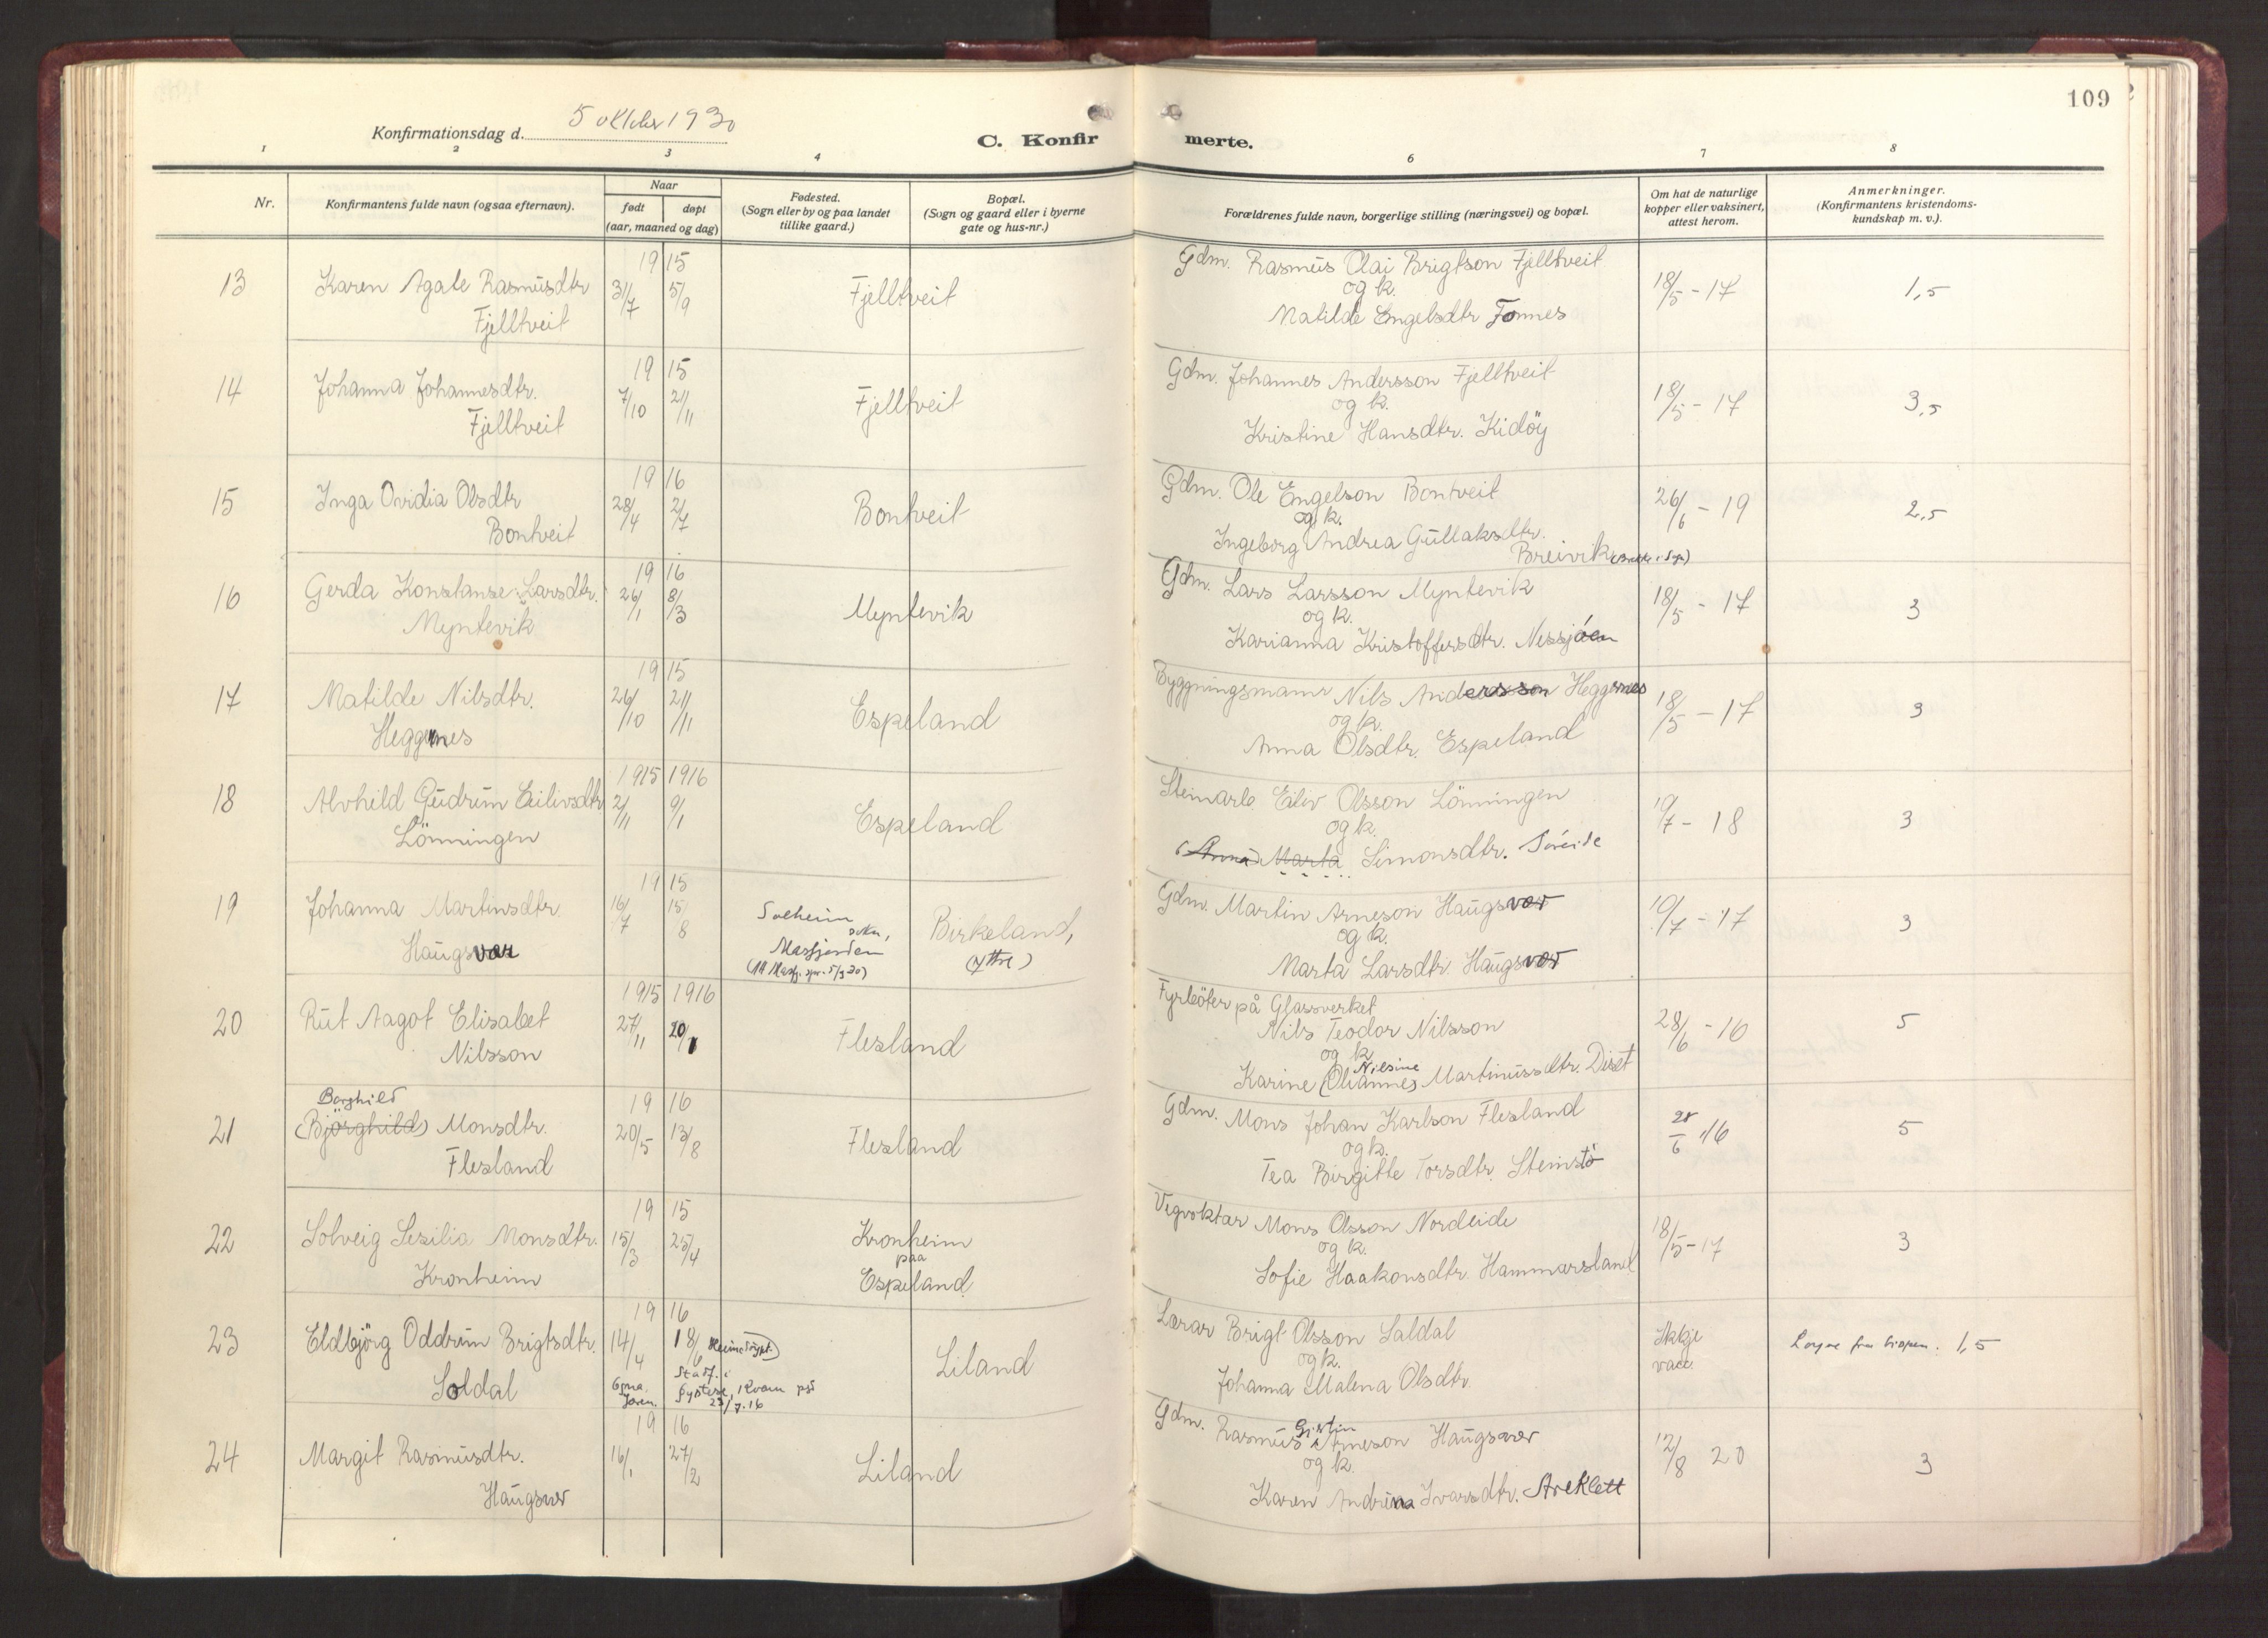 109
Konfirmationsdag d. 5 oktober 1930
C. Konfirmerte.
1 2 3 4 6 7 8
Nr.
Konfirmantens fulde navn (ogsaa efternavn).
Naar
født døpt
(aar, maaned og dag)
Fødested.
(Sogn eller by og paa landet
tillike gaard.)
Bopæl.
(Sogn og gaard eller i byerne
gate og hus-nr.)
Forældrenes fulde navn, borgerlige stilling (næringsvei) og bopæl.
Om hat de naturlige
kopper eller vaksinert,
attest herom.
Anmerkninger.
(Konfirmantens kristendoms-
kundskap m. v.).
13 Karen Agate Rasmusdtr
Fjelltveit
19 15
31/7 5/9
Fjelltveit
Gdm. Rasmus Olai Brigtson Fjelltveit
og k.
Matilde Engelsdtr Fonnes
18/5 - 17
1,5
14 Johanna Johannesdtr.
Fjelltveit
19 15
7/10 21/11
Fjelltveit
Gdm. Johannes Andersson Fjelltveit
og k.
Kristine Hansdtr. Kidöy
18/5 - 17
3,5
15 Inga Ovidia Olsdtr
Bontveit
19 16
28/4 2/7
Bontveit
Gdm. Ole Engelson Bontveit
og k.
Ingeborg Andrea Gullaksdtr.
Breivik
26/6 - 19
2,5
16 Gerda Konstanse Larsdtr.
Myntevik
19 16
26/1 8/3
Myntevik
Gdm. Lars Larsson Myntevik
og k.
Karianna Kristoffersdtr. Nessjöen
18/5 - 17
3
17 Matilde Nilsdtr.
Heggernes
19 15
26/10 21/11
Espeland
Byggningsmann Nils Andersson Heggernes
og k.
Anna Olsdtr. Espeland
18/5 - 17
3
18 Alvhild Gudrun Eilivsdtr
Lönningen
1915 1916
2/11 9/1
Espeland
Steinarb. Eiliv Olsson Lönningen
og k.
(Anna) Marta Simonsdtr. Söreide
19/7 - 18
3
19 Johanna Martinsdtr.
Haugsvær
19 15
16/7 15/8
Solheim
sokn,
Masfjorden
Birkeland,
(Ytre)
Gdm. Martin Arneson Haugsvær
og k.
Marta Larsdtr. Haugsvær
19/7 - 17
3
20 Rut Aagot Elisabet
Nilsson
1915 1916
27/11 20/1
Flesland
Fyrböter på Glassverket
Nils Teodor Nilsson
og k.
Nilsine
Karine (Olianne) Martinusdtr. Diset
28/6 - 16
5
21 Borghild
(Björghild) Monsdtr.
Flesland
19 16
20/5 13/8
Flesland
Gdm. Mons Johan Karlson Flesland
og k.
Tea Birgitte Torsdtr. Steinstö
28/6 16
5
22 Solveig Sesilia Monsdtr.
Kronheim
19 15
15/3 25/4
Kronheim
paa
Espeland
Vegvoktar Mons Olsson Nordeide
og k.
Sofie Haakonsdtr. Hammarsland
18/5 - 17
3
23 Eldbjörg Oddrun Brigtsdtr.
Soldal
19 16
14/4 18/6 (Heimedöypt.)
Stadf. i
Öystese, Kvam pgd
23/7.16
Liland
Lærar Brigt Olsson Saldal
og k.
Johanna Malena Olsdtr.
Ikkje
vacc
Løyve fra bispen. 1,5
24 Margit Rasmusdtr.
Haugsvær
19 16
16/1 27/2
Liland
Gdm. Rasmus Gjertin Arneson Haugsvær
og k.
Karen Andrina Ivarsdtr. Areklett
12/8 20
3